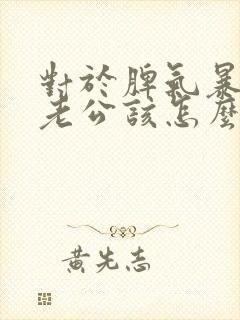 對於脾氣暴
老公該怎麼
黃先志